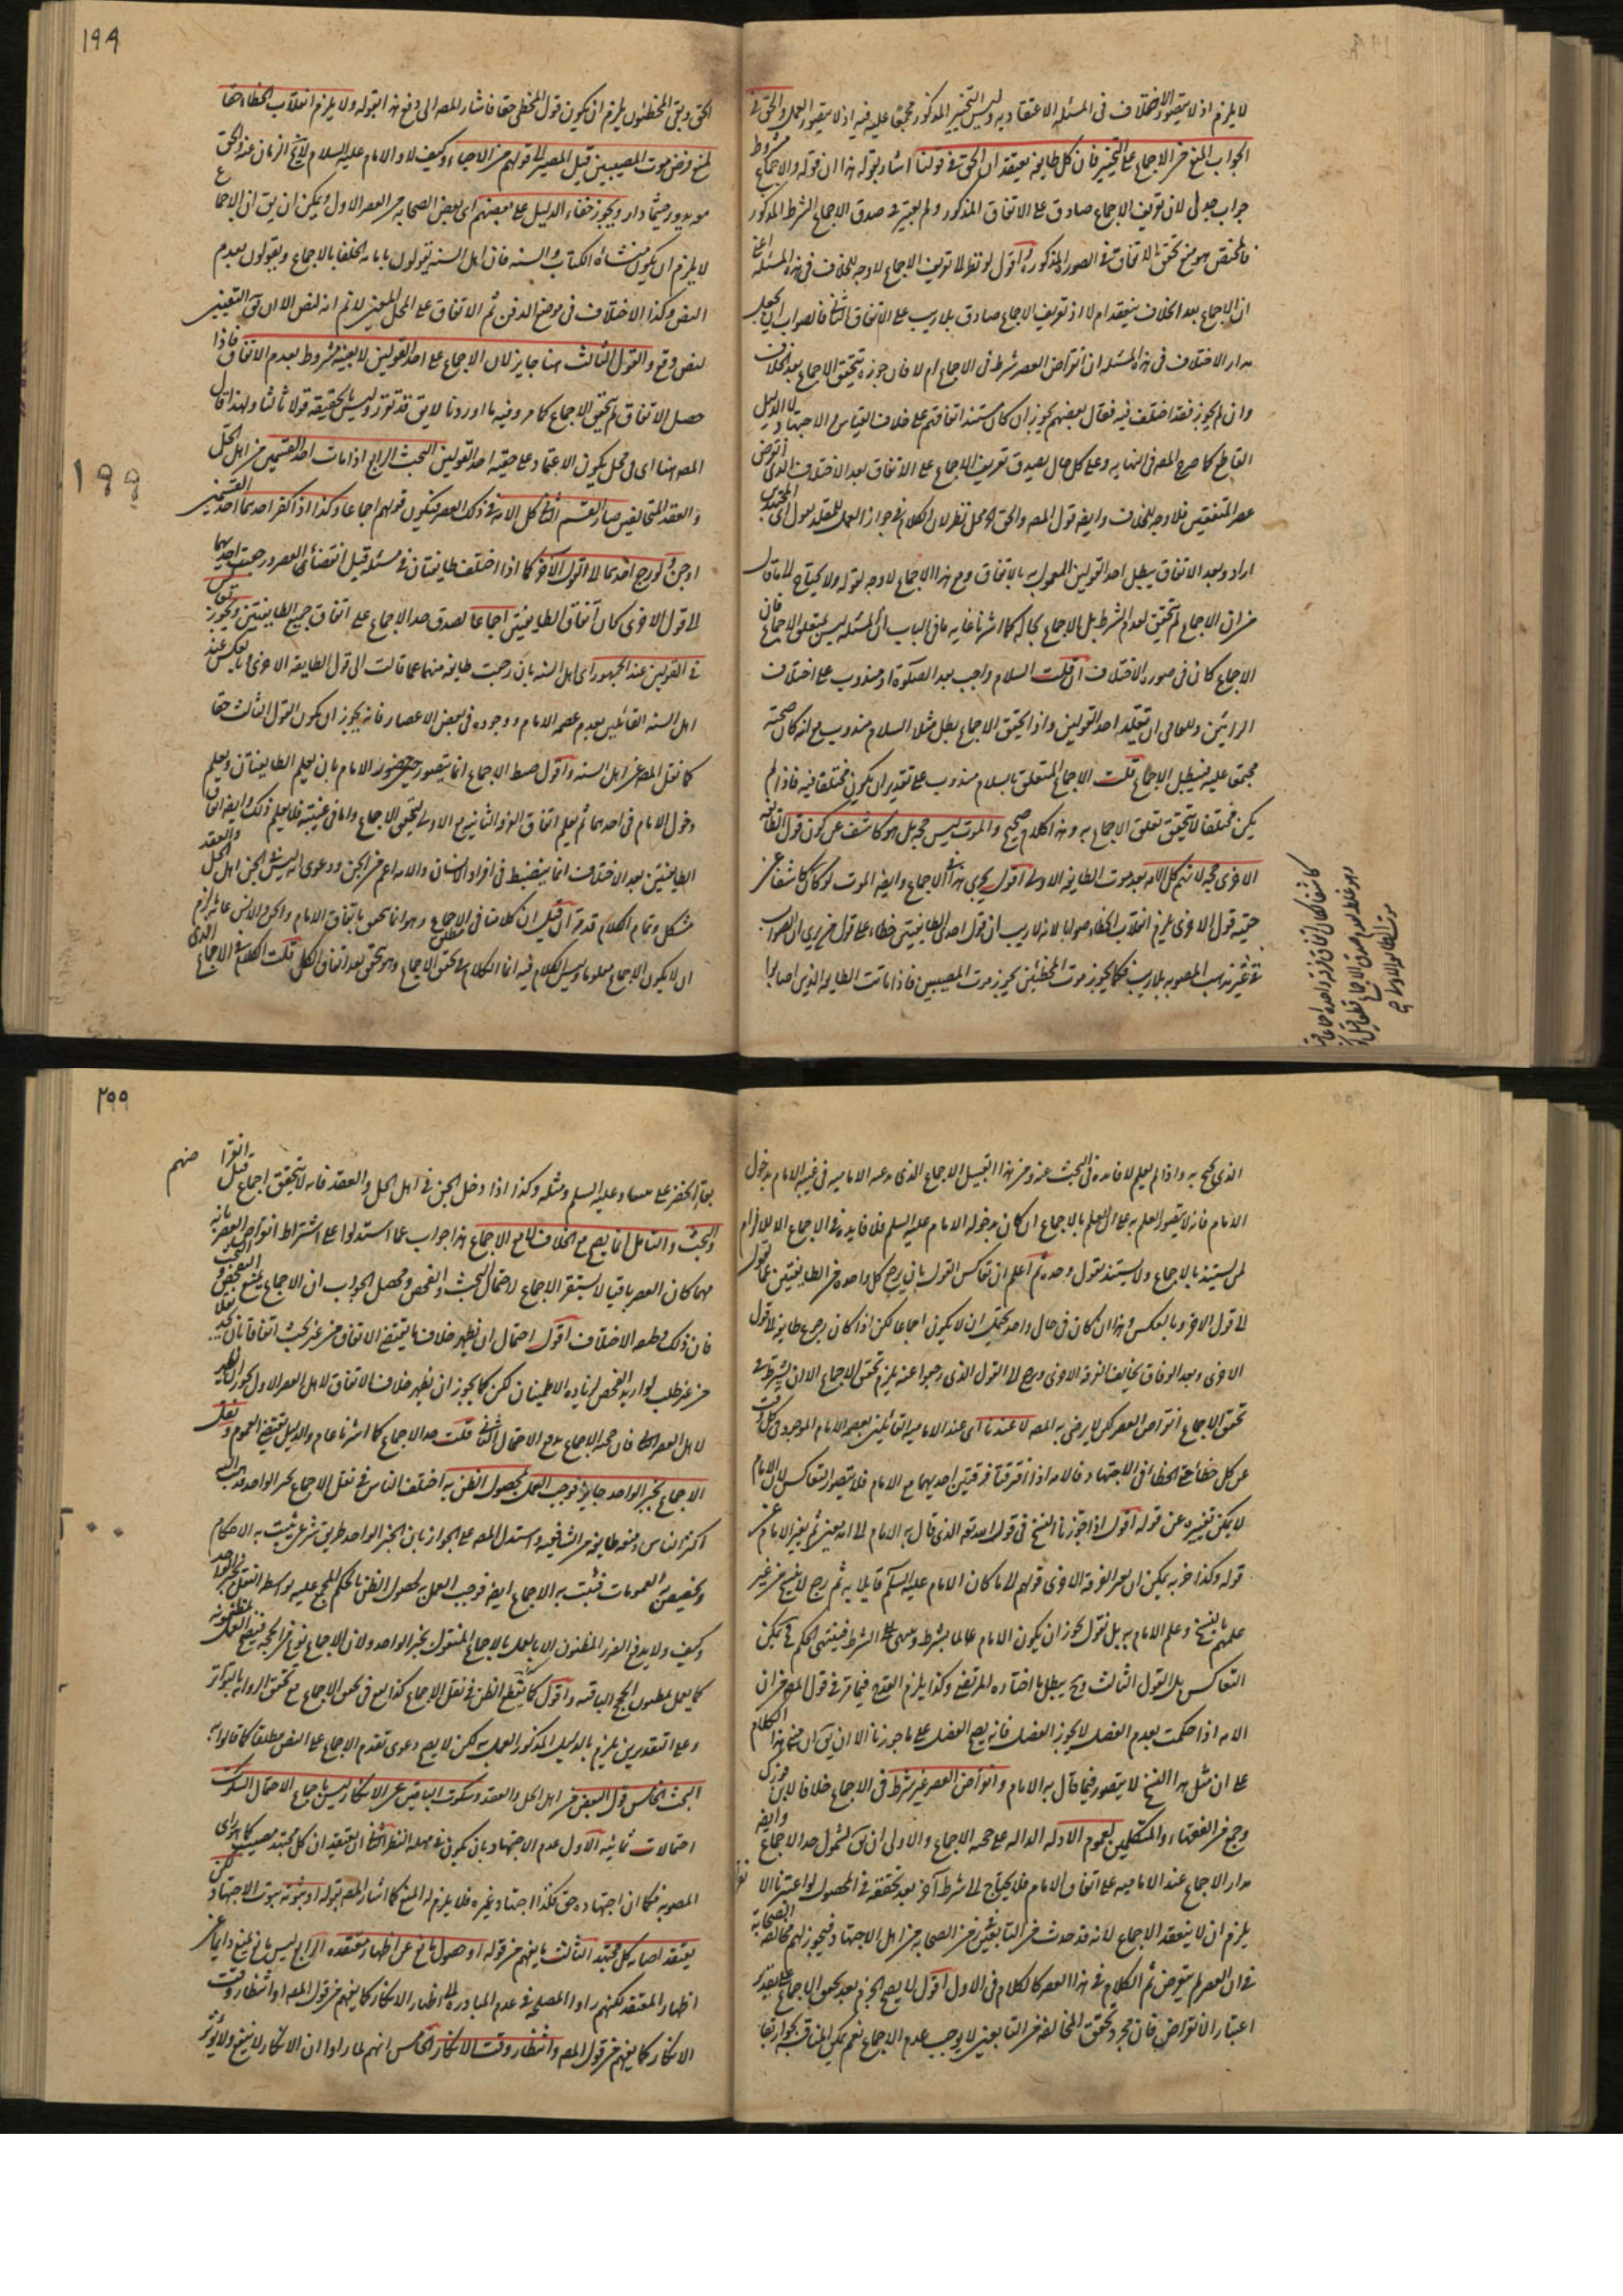 لا يلزم اذ لا يتصور الاختلاف فى المسئله الاعتقاديه وليس التخيير المذكور مجمعا عليه فيه اذ لا يتصور العمل والحق فى
الجواب المنع من الاجماع على التخيير فان كل طايفه يعتقد ان الحق فى قولنا اشار بقوله هذا ان قوله والاجماع مشروط
جواب جدلى لان تعريف الاجماع صادق على الاتفاق المذكور ولم يعتبر فى صدق الاجماع الشرط المذكور
هو منع تحقق الاتفاق فى الصور المذكوره واقول لو نظر لا تعريف الاجماع لا وجه للخلاف فى هذه المسئله اعنى
ان الاجماع بعد الخلاف ينعقد ام لا اذ تعريف الاجماع صادق بلا ريب على الاتفاق الثانى فالصواب ان يجعل
مدار الاختلاف فى هذه المسئله ان انقراض العصر شرط فى الاجماع ام لا فان جوزه يتحقق الاجماع بعد الخلاف
وان لم يجوز فقد اختلف فيه فقال بعضهم يجوز ان كان مستند اتفاقهم على خلاف القياس والاجتهاد لا الدليل
القاطع كما صرح المصه فى النهايه وعلى كل حال يصدق تعريف الاجماع على الاتفاق بعد الاختلاف الذى انقرض
عصر المتفقين فلا وجه للخلاف وايضه قول المصه والحق محل نظر لان الكلام فى جواز العمل للمقلد بقول اى المجتهدين
اراد وبعد الاتفاق يبطل احد القولين المعمول به بالاتفاق ومع هذا الاجماع لا وجه لقوله ولا يحتاج لما قال
من ان الاجماع لم يتحقق لعدم الشرط بل الاجماع بحاله كما اشرنا غايه ما فى الباب ان المسئله ليس لتعلق الاجماع فان
الاجماع كان فى صوره الاختلاف ان قلت السلام واجب بعد الصلوة او مندوب على اختلاف
الرائين وللعامى ان يقلد احد القولين واذا تحقق الاجماع بطل مثلا السلام مندوب مع انه كان صحته
مجمعا عليه فيبطل الاجماع قلت الاجماع المتعلق بالسلام مندوب على تقدير ان يكون مختلفا فيه فاذا لم
يكن مختلفا لا يتحقق تعلق الاجماع به وهذا كلام صحيح والموت ليس حجه بل هو كاشف عن كون قول الطايفه
الاخرى حجه لانهم كل الامه بعد موت الطايفه الاولى اقول يجرى هذا فى الاجماع وايضه الموت لو كان كاشفا عن
حقيه قول الاخرى يلزم انقلاب الخطاء صوابا لانه لا ريب ان قول احدى الطايفتين خطاء على قول من يرى ان الصواب
فى غير مذهب المصوبه بلا ريب فكما يجوز موت المخطئين يجوز موت المصيبين فاذا ماتت الطايفه الذين اصابوا
١٩٩
الحق وبقى المخطئون يلزم ان يكون قول المخطى حقا فاشار المصه الى دفع هذا بقوله ولا يلزم انقلاب الخطاء حقا
لمنع فرض موت المصيبين قبل المصير الى قولهم من الاحياء وكيف لا والامام عليه السلام لا يخ الزمان عنه والحق
مع يدور حيثما دار ويجوز خفاء الدليل على بعضهم اى بعض الصحابه من العصر الاول ويمكن ان يق ان الاجماع
لا يلزم ان يكون منشاه الكتاب والسنه فان اهل السنه يقولون بامامه الخلفا بالاجماع ويقولون بعدم
النص وكذا الاختلاف فى موضع الدفن ثم الاتفاق على المحل المعين لا ثم انه لنص الا ان يق التعيين
لنص وقع والقول الثالث هنا جايز لان الاجماع على احد القولين لا بعينه مشروط بعدم الاتفاق فاذا
حصل الاتفاق لم يتحقق الاجماع كما مر وفيه ما اوردنا لا يق قد تقرر وليس بالحقيقه قولا ثالثا ولهذا قال
المصه هنا اى فى محل يكون الاعتماد على حقيه احد القولين البحث الرابع اذا مات احد القسمين من اهل الحل
199
والعقد المتخالفين صار القسم الثانى كل الامه فى ذلك العصر فيكون قولهم اجماعا وكذا اذا كفر احدهما احد القسمين
او جن ولو رجع احدهما الى القول الآخر كما اذا اختلف طايفتان فى مسئله قبل انقضاء العصر ورجعت احديهما
الى قول الاخرى كان اتفاق الطايفتين اجماعا لصدق حد الاجماع على اتفاق جميع الطايفتين ويجوز تعاكس
فى القولين عند الجمهور اى اهل السنه بان رجعت طايفه منهما عما قالت الى قول الطايفه الاخرى وبالعكس عند
اهل السنه القائلين بعدم عصمه الامام ووجوده فى بعض الاعصار فانه يجوز ان يكون القول الثالث حقا
كما نقل المصه عن اهل السنه واقول ضبط الاجماع انما يتصور حين حضور الامام بان يعلم الطايفتان ويعلم
دخول الامام فى احدهما ثم يعلم اتفاق الفرقه الثانيه مع الاولى ليتحقق الاجماع واما فى غيبته فلا يعلم ذلك وايضه اتفاق
الطايفتين بعد الاختلاف انما ينضبط فى افراد الانسان والامه اعم من الجن ودعوى انه ليس من الجن اهل الحل والعقد
مشكل وتمام الكلام قد مر ان قيل ان كلامنا فى مطلق الاجماع وهو انما تحقق باتفاق الامام والجن والانس غايه ما لزم
ان لا يكون الاجماع معلوما وليس الكلام فيه انما الكلام فى تحقق الاجماع وهو تحقق بعد اتفاق الكل قلت الكلام فى الاجماع الذى
الذى يحتج به واذا لم يعلم لا فايده فى البحث عنه ومن هذا القبيل الاجماع الذى يدعيه الاماميه فى غيبه الامام بدخول
الامام فانه لا يتصور العلم به على ان العلم بالاجماع ان كان بدخوله الامام عليه السلم فلا فايده فى الاجماع الا للالزام
لمن يستند بالاجماع ولا يستند بقول وحده ثم اعلم ان تعاكس القول بان يرجع كل واحده من الطايفتين عما تقول
الى قول الاخرى وبالعكس وهذا ان كان فى حال واحد يحتمل ان لا يكون اجماعا لكن اذا كان رجع طايفه الى قول
الاخرى وبعد الوفاق يخالف الفرقه الاخرى ورجع الى القول الذى رجعوا عنه يلزم تحقق الاجماع الا ان يشترط فى
تحقق الاجماع انقراض العصر لكن لا يرضى به المصه لا عندنا اى عند الاماميه القائلين بعصمه الامام الموجود فى كل وقت
عن كل خطاء حتى الخطاء فى الاجتهاد فالامه اذا افترقت فرقتين احديهما مع الامام فلا يتصور التعاكس لان الامام
لا يمكن تغييره عن قوله اقول اذا جوزنا النسخ فى قول الله تعه الذى قال به الامام الى امد معين ثم يغير الامام عن
قوله وكذا حزبه يمكن ان يصير الفرقه الاخرى قولهم الى ما كان الامام عليه السلم قايلا به ثم رجع لا نسخ من غير
علمهم بالنسخ وعلم الامام به بل نقول يجوز ان يكون الامام عالما بشرطه وينتهى الشرط فينتهى الحكم فيمكن
التعاكس بل القول الثالث وح يبطل ما اختاره المرتضى وكذا يلزم القدح فيما مر فى قول المصه من ان
الامه اذا حكمت بعدم الفصل لا يجوز الفصل فانه يصح الفصل على ما جوزنا الا ان يق ان هذا الكلام
على ان مثل هذا النسخ لا يتصور فيما قال به الامام وانقراض العصر غير شرط فى الاجماع خلافا لابن فورك
وجمع من الفقهاء والمتكلمين لعموم الادله الداله على حجيه الاجماع والاولى ان يق لشمول حد الاجماع وايضه
مدار الاجماع عند الاماميه على اتفاق الامام فلا يحتاج الى شرط آخر بعد تحققه فى الحصول لو اعتبرنا الا
يلزم ان لا ينعقد الاجماع لانه قد حدث من التابعين زمن الصحابه من اهل الاجتهاد فيجوز لهم مخالفه الصحابة
فى ان العصر لم ينقرض ثم الكلام فى هذا العصر كالكلام فى الاول اقول لا يصح الجزم بعد تحقق الاجماع على تقدير
اعتبار الانقراض فان مجرد تحقق المخالفه من التابعين لا يوجب عدم الاجماع نعم يمكن المناقشه بجواز بقا
٢٠٠
بقاء الخضر على ميعاد عليه السلم ومثله وكذا اذا دخل الجن فى اهل الحل والعقد فانه لا يتحقق اجماع قبل انقراضهم
والبحث والتامل انما يصح مع الخلاف لا مع الاجماع هذا جواب عما استدلوا على اشتراط انقراض العصر بانه
مهما كان العصر باقيا لا يستقر الاجماع لاحتمال البحث والفحص ومحصل الجواب ان الاجماع يمنع الفحص والبحث
فان ذلك وظيفه الاختلاف اقول احتمال ان يظهر خلاف ما يقتضى الاتفاق من غير بحث اتفاقا بان يجد نقلا
من غير طلب او اريد الفحص لزياده الاطمينان لكن كما يجوز ان يظهر خلاف الاتفاق لاهل العصر الاول يجوز ان يظهر
لاهل العصر الثانى فان حجه الاجماع يدفع الاحتمال الثانى قلت حد الاجماع كما اشرنا عام والدليل يقتضى العموم ونقل
الاجماع بخبر الواحد جايز فوجب العمل لحصول الظن به اختلف الناس فى نقل الاجماع بخبر الواحد فذهب اليه
اكثر الناس ومنعه طايفه من الشافعيه واستدل المصه على الجواز بان الخبر الواحد طريق شرعى يثبت به الاحكام
ويخصص به العمومات فيثبت به الاجماع ايضه فوجب العمل به لحصول الظن بالحكم المجمع عليه بواسطه النقل بخبر الواحد
وكيف ولا يدفع الضرر المظنون الا بالعمل بالاجماع المنقول بخبر الواحد ولان الاجماع نوع من الحجه فيصح العمل بمظنونه
كما يعمل بمظنون الحجج الباقيه واقول كما يقع الظن فى نقل الاجماع كذا يقع فى تحقق الاجماع مع تحقق الروايه بالتواتر
وعلى التقديرين يلزم بالدليل المذكور العمل به لكن لا يصح دعوى تقدم الاجماع على النص مطلقا كما قالوا به
البحث الخامس قول البعض من اهل الحل والعقد وسكوت الباقين عن الانكار ليس باجماع لاحتمال السكوت
احتمالات ثمانيه الاول عدم الاجتهاد بان يكون فى مهله النظر الثانى ان يعتقد ان كل مجتهد مصيب كما هو راى
المصوبه فكما ان اجتهاده حق فكذا اجتهاد غيره فلا يلزم له المنع كما اشار المصه بقوله او ثبوته ثبوت الاجتهاد
يعتقد اصابه كل مجتهد الثالث ما يفهم من قوله او حصول مانع عن اظهار معتقده الرابع ليس مانع يمنع دايما عن
اظهار المعتقد لكنهم راوا المصلحه فى عدم المبادره الى اظهار الانكار كما يفهم من قول المصه او انتظار وقت
الانكار كما يفهم من قول المصه وانتظار وقت الانكار الخامس انهم لما راوا ان الانكار لا ينفع ولا يؤثر